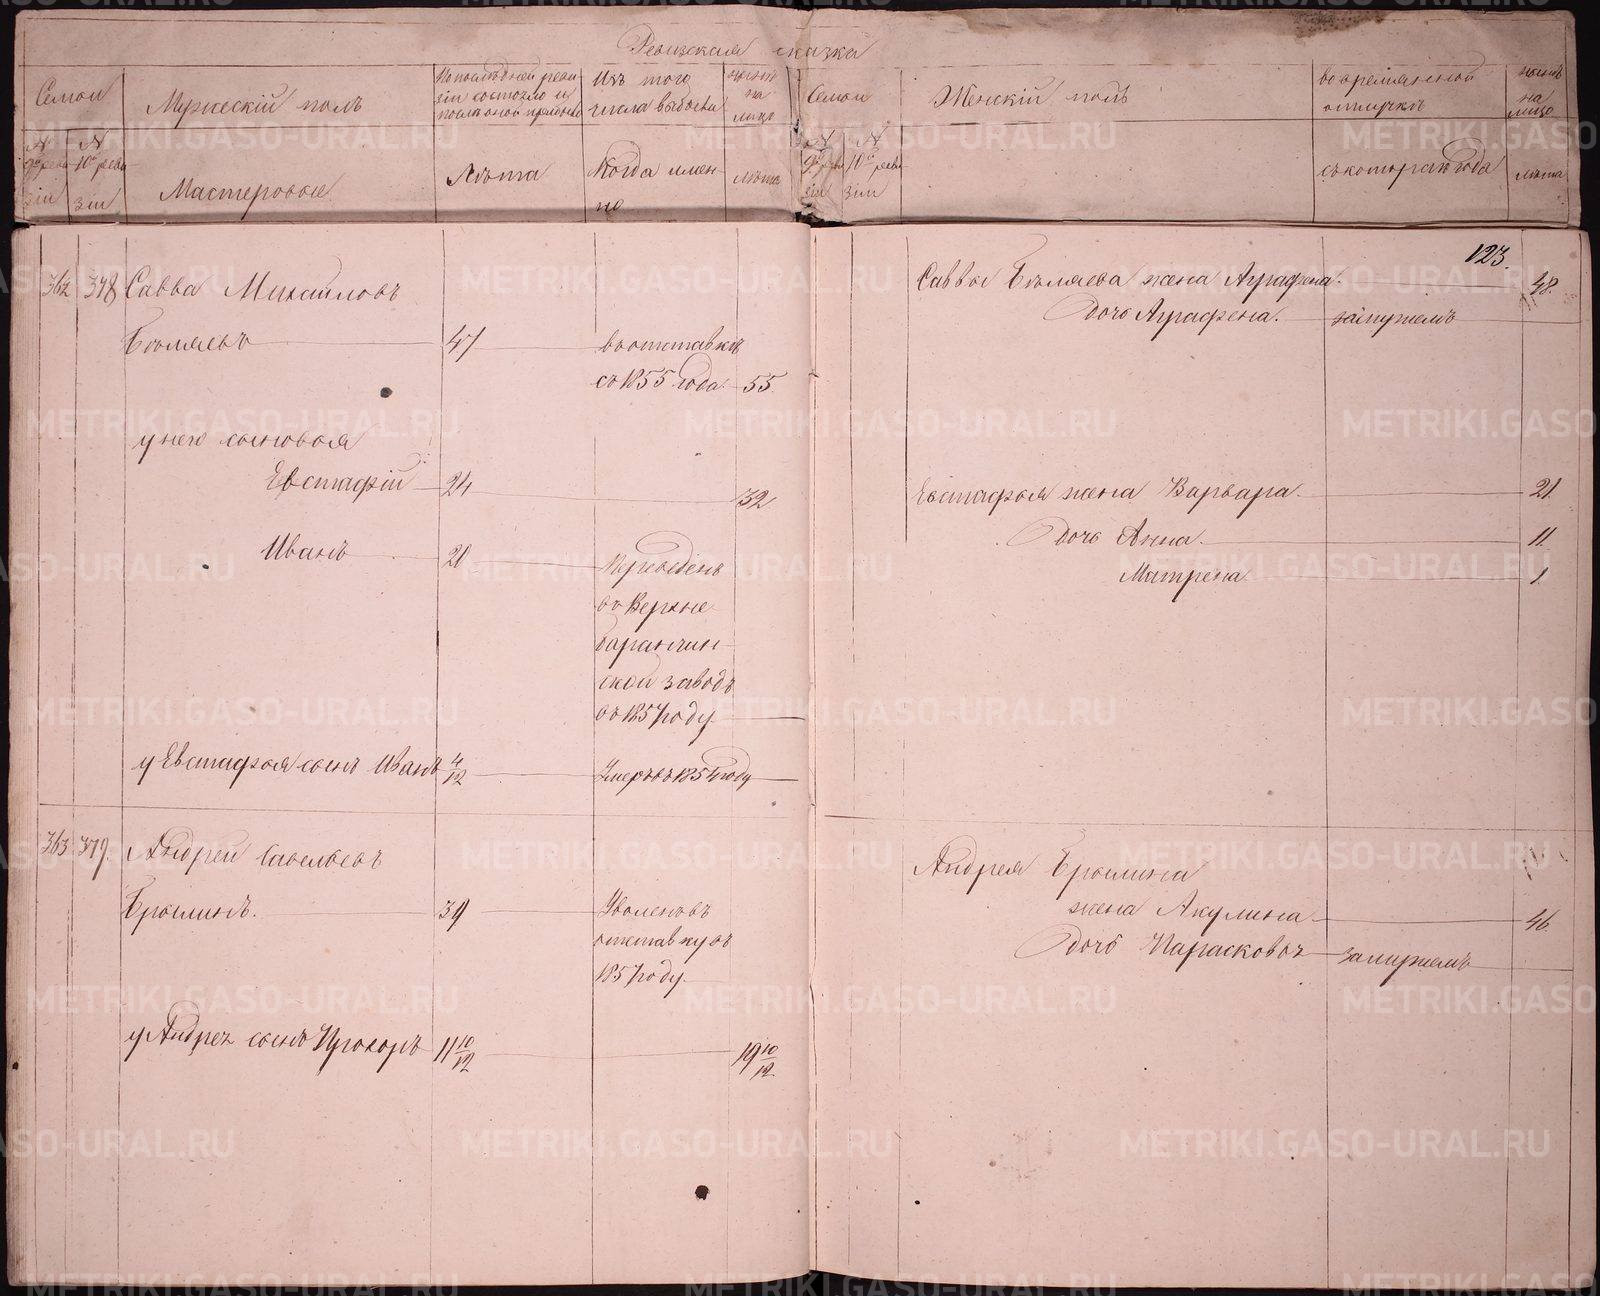 Ревизская сказка
Семьи
Мужеский полъ
По последней реви
зіи состояло и
после оной прибыло
Изъ того
числа выбыло
ныне
на
лицо
Семьи
Женскій полъ
во временной
отлучке
ныне
на
лицо
№
9й реви
зіи
№
10й реви
зіи
Мастеровые
Лъта
Когда имен-
но
лъта
№
9й реви
зіи
№
10й реви
зіи
съ котораго года
лъта
123.
362
378
Савва Михайловъ
Бъляевъ
47
въ отставкъ
съ 1855 года
55
у него сыновья
Евстафій
24
32
Иванъ
20
Переведенъ
въ Верхне
баранчин-
ской заводъ
въ 1857 году
у Евстафья сынъ Иванъ
4/12
Умеръ въ 1854 году
363
379.
Андрей Савельевъ
Ерылинъ.
39
Уволенъ въ
отставку въ
1857 году
у Андрея сынъ Прохоръ
11 10/12
19 10/12
Саввы Бъляева жена Аграфена.
48.
Дочь Аграфена.
замужемъ
Евстафья жена Варвара.
21.
Дочь Анна.
11.
Матрена.
1
Андрея Ерылина
жена Акулина
46
Дочь Парасковья
замужемъ
METRIKI.GASO-URAL.RU